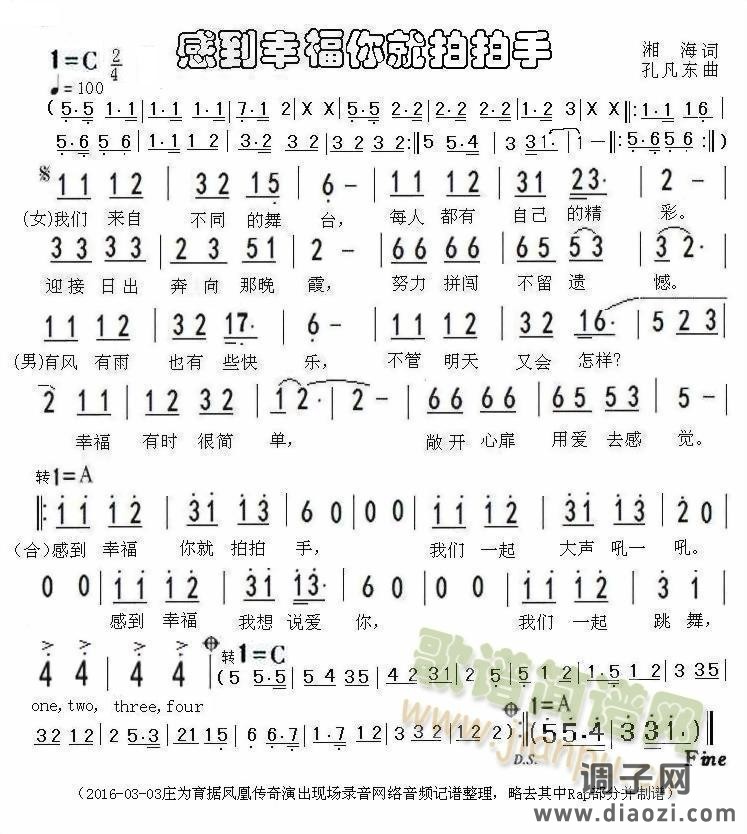 感到幸福你就拍拍手
1=C 2/4
湘 海 词
♩=100
孔凡东 曲
(5·5 1·1 | 1·1 1·1 | 6·6 2·2 | 2·2 1·2 | X X | 5·5 2·2 | 2·2 2·1 | 1·2 3 | X X ‖: 1·1 16 |
5·6 56 | 1·1 1 2 | 3·2 3 2 | 3 2 3 2 :‖ 5 5·4 | 3 331· | 1— ‖: 5·6 56 :‖)
𝄋 1 1 1 2 | 3 2 1 5 | 6 — | 1 1 1 2 | 3 1 2 3· | 2 — |
(女)我们 来自 不同 的舞 台, 每人 都有 自己 的精 彩。
3 3 3 3 | 2 3 5 1 | 2 — | 6 6 6 6 | 6 5 5 3 | 3 2· |
迎接 日出 奔 向 那晚 霞, 努力 拼闯 不留 遗 憾。
1 1 1 2 | 3 2 1 7· | 6 — | 1 1 1 2 | 3 2 1 6· | 5 2 3 |
(男)有风 有雨 也有 些快 乐, 不管 明天 又会 怎样?
2 1 1 1 | 1 2 3 2 | 1 2· | 2 — | 6 6 6 6 | 6 5 2 3 | 5 — |
幸福 有时 很简 单, 敞开 心扉 用爱 去感 觉。
转1=A
‖: 1 1 1 2 | 3 1 1 3 | 6 0 | 0 0 | 1 1 1 2 | 3 1 1 3 | 2 0 |
(合)感到 幸福 你就 拍拍 手, 我们 一起 大声 吼一 吼。
0 0 | 1 1 1 2 | 3 1 1 3· | 6 0 | 0 0 | 1 1 1 2 | 3 1 |
感到 幸福 我想 说爱 你, 我们 一起 跳 舞,
4 4 | 4 4 | 转1=C (5 5·5 | 5 4 3 5 | 4322 12 | 5·5 5 1 | 2 1·5 1 2 |
one,two, three,four
3 2 1 2 | 2·5 3 2 | 2 1 1 5 | 6 6·7 | 1·1 1 2 | 3 3 2 7) :‖ 1=A (5 5·4 | 3 3 1·) ‖
D.S.
Fine
(2016-03-03庄为育据凤凰传奇演出现场录音网络音频记谱整理,略去其中Rap部分并制谱)
歌谱简谱网
www.jianpu.cn
调子网
www.diaozi.com